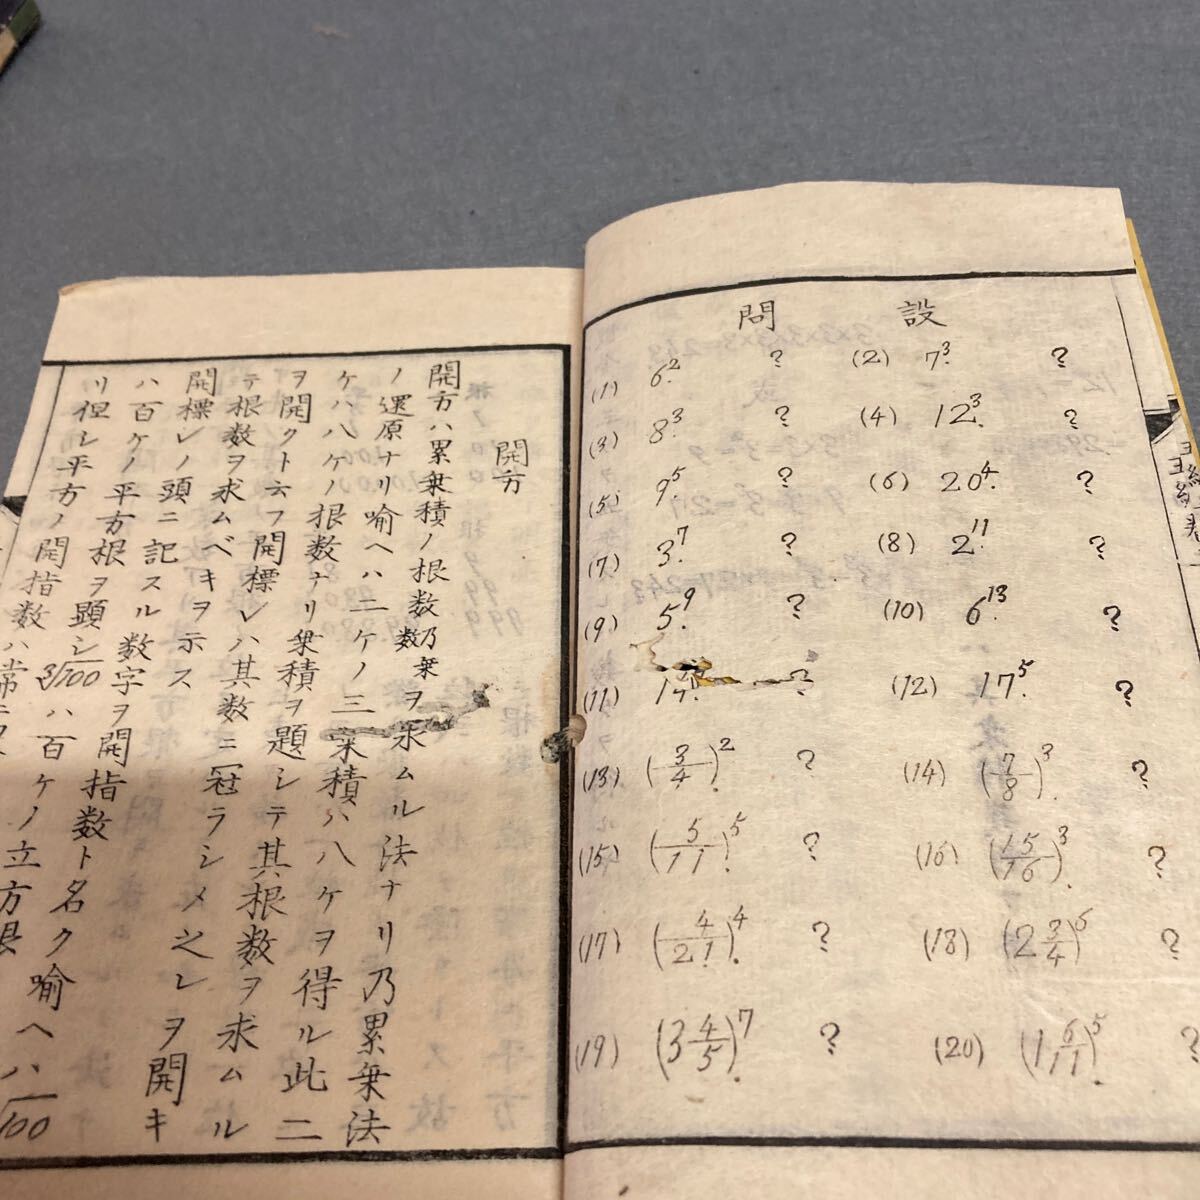 設問
(1) 6². ?
(2) 7³. ?
(3) 8³. ?
(4) 12³. ?
(5) 9⁵. ?
(6) 20⁴. ?
(7) 3⁷. ?
(8) 2¹¹. ?
(9) 5⁹. ?
(10) 6¹³. ?
(11) ?
(12) 17⁵. ?
(13) (3/4)². ?
(14) (7/8)³. ?
(15) (5/11)⁵. ?
(16) (15/16)³. ?
(17) (4/21)⁴. ?
(18) (2 3/4)⁶. ?
(19) (3 4/5)⁷. ?
(20) (1 6/11)⁵. ?
開方
開方ハ累乗積ノ根数乃乗数ヲ求ムル法ナリ乃累乗法
ノ還原ナリ喻ヘハ二ケノ三乗積ハ八ケヲ得ル此二
ケハ八ケノ根数ナリ乗積ヲ題シテ其根数ヲ求ムル
ヲ開クト云フ開標レハ其数ニ冠ラシメ之レヲ開キ
テ根数ヲ求ムベキヲ示ス
開標レノ頭ニ記スル数字ヲ開指数ト名ク喻ヘハ√100
ハ百ケノ平方根ヲ顕シ³√100ハ百ケノ立方根
リ但シ平方ノ開指数ハ常ニ